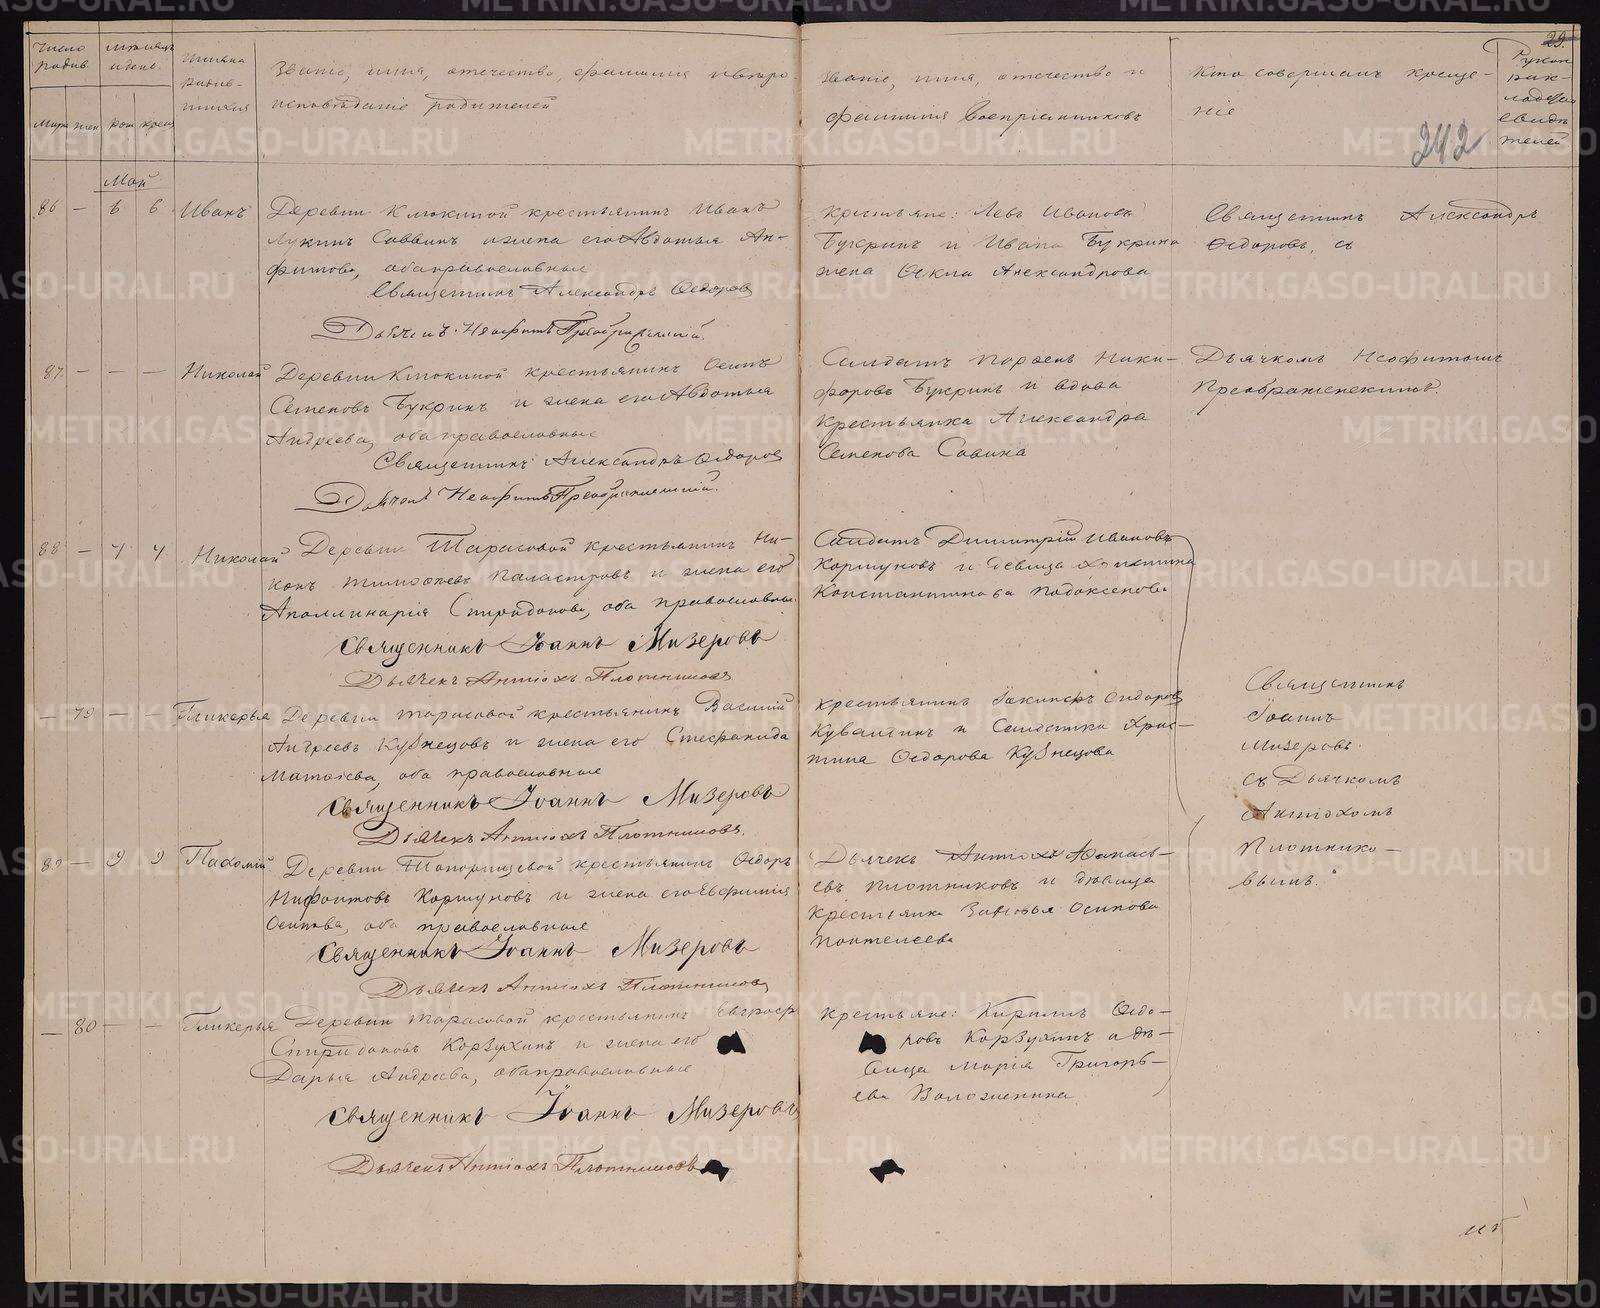 29.
242
Число родив.
Мѣсяцъ и день.
Имена родив-
шихся
Званіе, имя, отечество, фамилія и вѣро
исповѣданіе родителей
Званіе, имя, отечество и
фамилія воспріемниковъ
Кто совершалъ креще-
ніе
Рукоп
рик-
свидѣ
телей
муж жен рож крещ
Май
86 — 6 6 Иванъ
Деревни Клюкиной крестьянинъ Иванъ
Лукинъ Саввинъ и жена его Авдотья Ан-
фимова, оба православные
Священникъ Александръ Ѳедоровъ
Дьячекъ Неофитъ Преображенскій.
Крестьяне: Левъ Ивановъ
Букринъ и Ивана Букрина
жена Ѳекла Александрова
Священникъ Александръ
Ѳедоровъ, съ
87 — — — Николай
Деревни Клюкиной крестьянинъ Осипъ
Семеновъ Букринъ и жена его Авдотья
Андреева, оба православные
Священникъ Александръ Ѳедоровъ
Дьячекъ Неофитъ Преображенскій.
Солдатъ Парѳенъ Ники-
форовъ Букринъ и вдова
крестьянка Александра
Семенова Савина
Дьячкомъ Неофитомъ
Преображенскимъ.
88 — 7 7 Николай
Деревни Тарасовой крестьянинъ Ни-
конъ Тимоѳеевъ и жена его
Аполлинарія Спиридонова, оба православные
Священникъ Іоаннъ Мизеровъ
Дьячекъ Антіохъ Плотниковъ
Солдатъ Димитрій Ивановъ
Коршуновъ и девица
Константинова
— 79 — — Гликерья
Деревни Тарасовой крестьянинъ Василій
Андреевъ Кузнецовъ и жена его Стефанида
Матѳіева, оба православные
Священникъ Іоаннъ Мизеровъ
Дьячекъ Антіохъ Плотниковъ.
Крестьянинъ Сидоровъ
и Солдатка Хрис-
тина Ѳедорова Кузнецова
Священникъ
Іоаннъ
Мизеровъ.
съ Дьячкомъ
Антіохомъ
Плотнико-
вымъ.
89 — 9 9 Пахомій.
Деревни Топорищевой крестьянинъ Ѳедоръ
Нифонтовъ Коршуновъ и жена его Евфимія
Осипова, оба православные
Священникъ Іоаннъ Мизеровъ
Дьячекъ Антіохъ Плотниковъ
Дьячекъ Антіохъ Аѳанась-
евъ Плотниковъ и дѣвица
крестьянка Осипова
Пантелеева
— 80 — — Гликерья
Деревни Тарасовой крестьянинъ Евграфъ
Спиридоновъ Корзухинъ и жена его
Дарья Андреева, оба православные
Священникъ Іоаннъ Мизеровъ
Дьячекъ Антіохъ Плотниковъ
Крестьяне: Кирилъ Ѳедо-
ровъ Корзухинъ и дѣ-
вица Марія Григорь-
ева Воложенина
METRIKI.GASO-URAL.RU